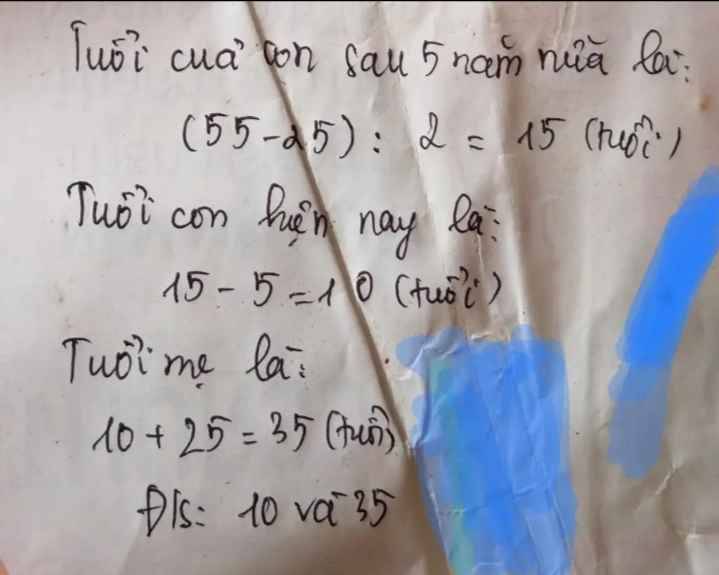 Tuổi của con sau 5 năm nữa là:
(55-25): 2 = 15 (tuổi)
Tuổi con hiện nay là:
15 - 5 = 10 (tuổi)
Tuổi mẹ là:
10 + 25 = 35 (tuổi)
Đ/s: 10 và 35